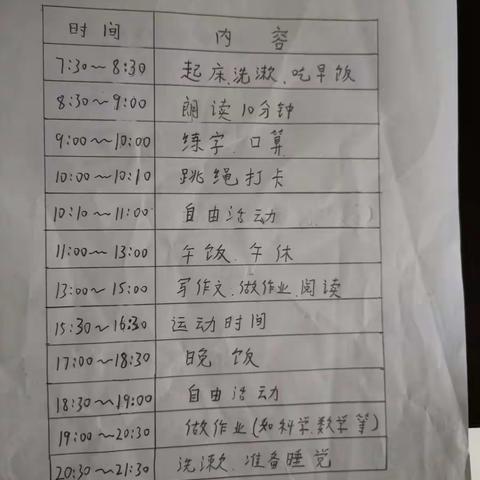 时间 内容
7:30～8:30 起床、洗漱、吃早饭
8:30～9:00 朗读10分钟
9:00～10:00 练字、口算
10:00～10:10 跳绳打卡
10:10～11:00 自由活动
11:00～13:00 午饭、午休
13:00～15:00 写作文、做作业、阅读
15:30～16:30 运动时间
17:00～18:30 晚饭
18:30～19:00 自由活动
19:00～20:30 做作业(如科学、数学等)
20:30～21:30 洗漱、准备睡觉